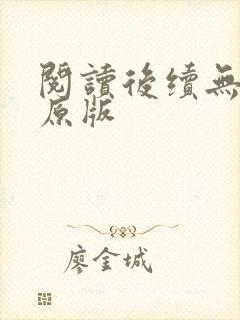 閱讀後續無
原版
廖金城